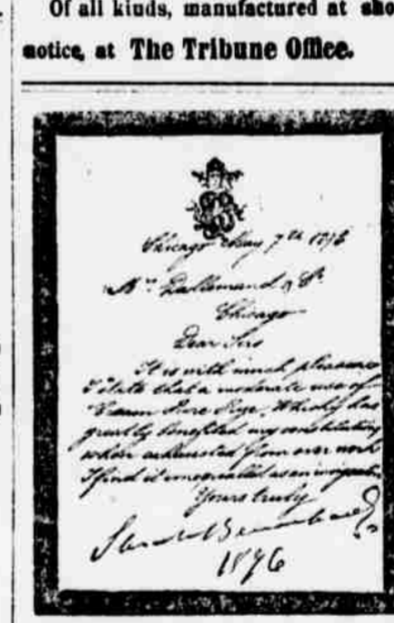 Of all kinds, manufactured at sho
notice, at The Tribune Office.
Chicago May 7th 1896
Mrs Dallemand & Co.
Chicago
Dear Sirs
It is with much pleasure
I state that a moderate use of
Cream Pure Rye Whisky has
greatly benefited my constitution
when exhausted from over work
I find it unequalled as an invigorator
Yours truly
Sarah Bernhardt
1896